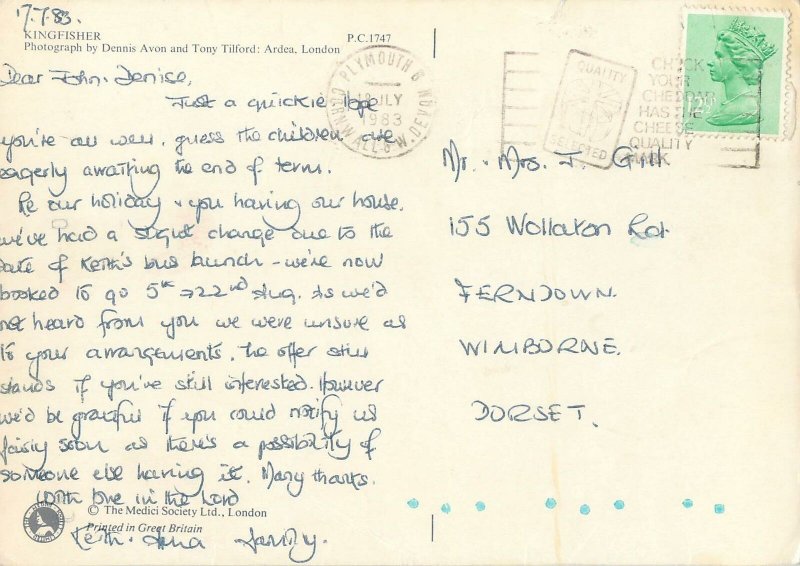 17.7.83.
KINGFISHER
P.C.1747
Photograph by Dennis Avon and Tony Tilford: Ardea, London
Dear John & Denise,
Just a quickie, hope
you're all well, guess the children are
eagerly awaiting the end of term.
Re our holiday & you having our house,
we've had a slight change due to the
date of Keith's bus launch - we're now
booked to go 5th → 22nd Aug. As we'd
not heard from you we were unsure as
to your arrangements, the offer still
stands if you've still interested. However
we'd be grateful if you could notify us
fairly soon as there's a possibility of
someone else having it. Many thanks.
With love in the Lord
© The Medici Society Ltd., London
Printed in Great Britain
Keith family.
PLYMOUTH &
CORNWALL & W. DEVON
18 JLY
1983
QUALITY
SELECTED
CHECK
YOUR
CHEDDAR
HAS THE
CHEESE
QUALITY
MARK
12½P
Mr. & Mrs. J. Gill
155 Wollaton Rd.
FERNDOWN.
WIMBORNE.
DORSET.